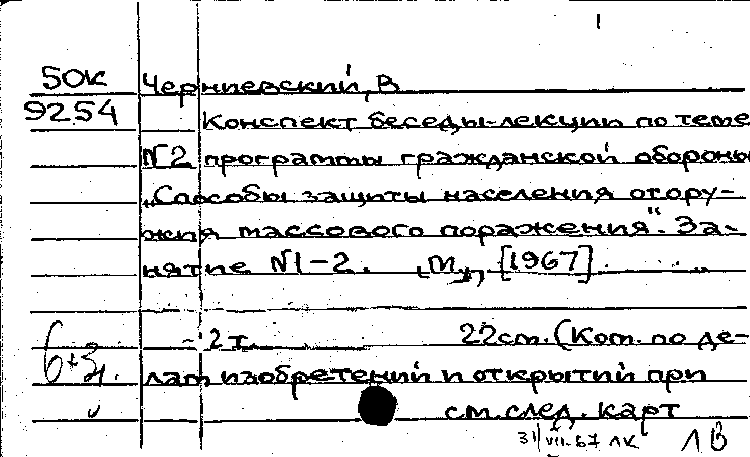 1
50к Черниевский, В
9254 Конспект беседы-лекции по теме
№2 программы гражданской обороны
„Способы защиты населения от ору-
жия массового поражения". За-
нятие №1-2. М., [1967]
2 т. 22 см. (Ком. по де-
6+3 лам изобретений и открытий при
см. след. карт
31/VII.67 ЛК 1В